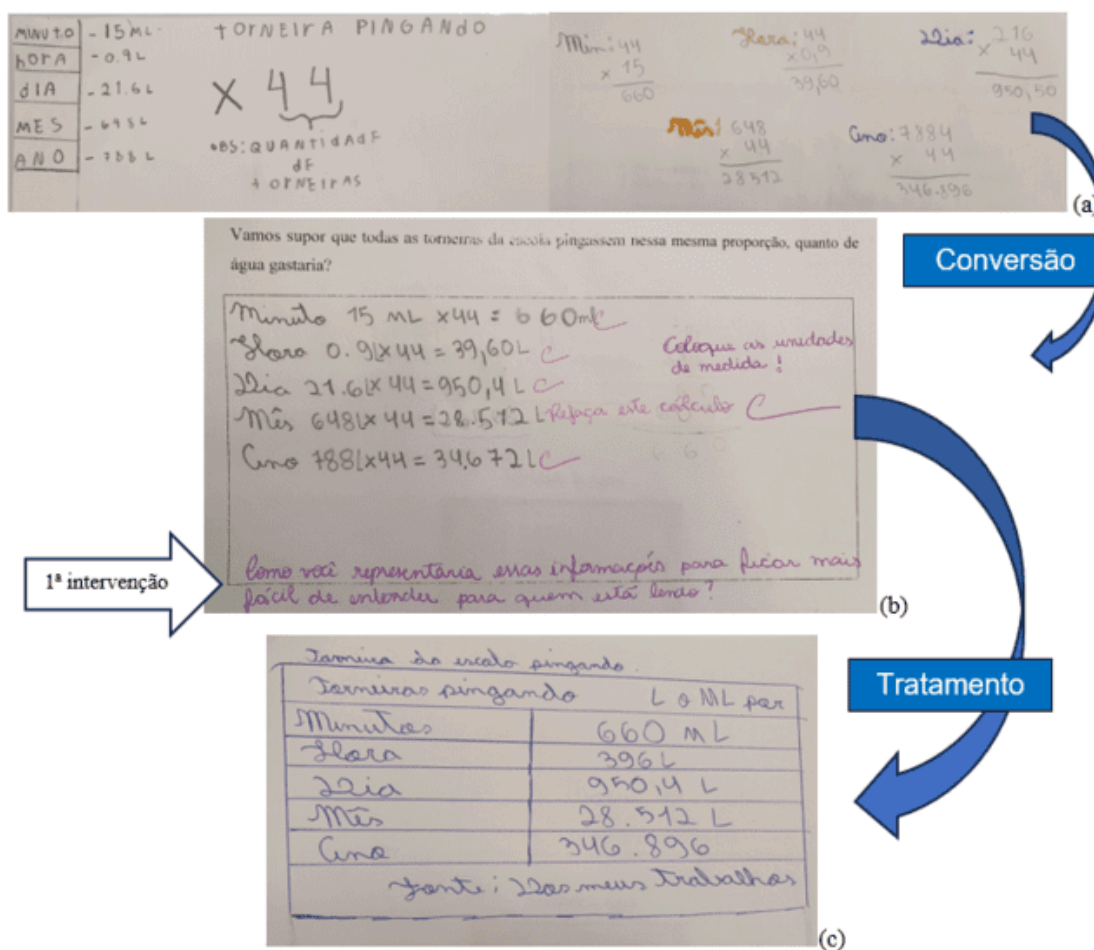 MINUTO - 15 ML
hORA - 0.9 L
dIA - 21.6 L
MES - 648 L
ANO - 788 L
tORNEIRA PINGANdO
X 44
OBS: QUANTIdAdE
dE
tORNEIRAS
Min: 44
x 15
660
Hora: 44
x0,9
39,60
Dia: 216
x 44
950,50
Mês: 648
x 44
28512
Ano: 7884
x 44
346.896
(a)
Conversão
Vamos supor que todas as torneiras da escola pingassem nessa mesma proporção, quanto de
água gastaria?
Minuto 15 ML x44 = 660ml
Hora 0.9L x 44 = 39,60L
Dia 21.6L x 44 = 950,4 L
Mês 648L x 44 = 28.512 L
Ano 788L x 44 = 34.672 L
Coloque as unidades
de medida!
Refaça este cálculo
Como você representaria essas informações para ficar mais
fácil de entender para quem está lendo?
1ª intervenção
(b)
Tratamento
Torneira da escola pingando.
Torneiras pingando L o ML por
Minutos 660 ML
Hora 396L
Dia 950,4 L
Mês 28.512 L
Ano 346.896
Fonte: Dos meus Trabalhos
(c)